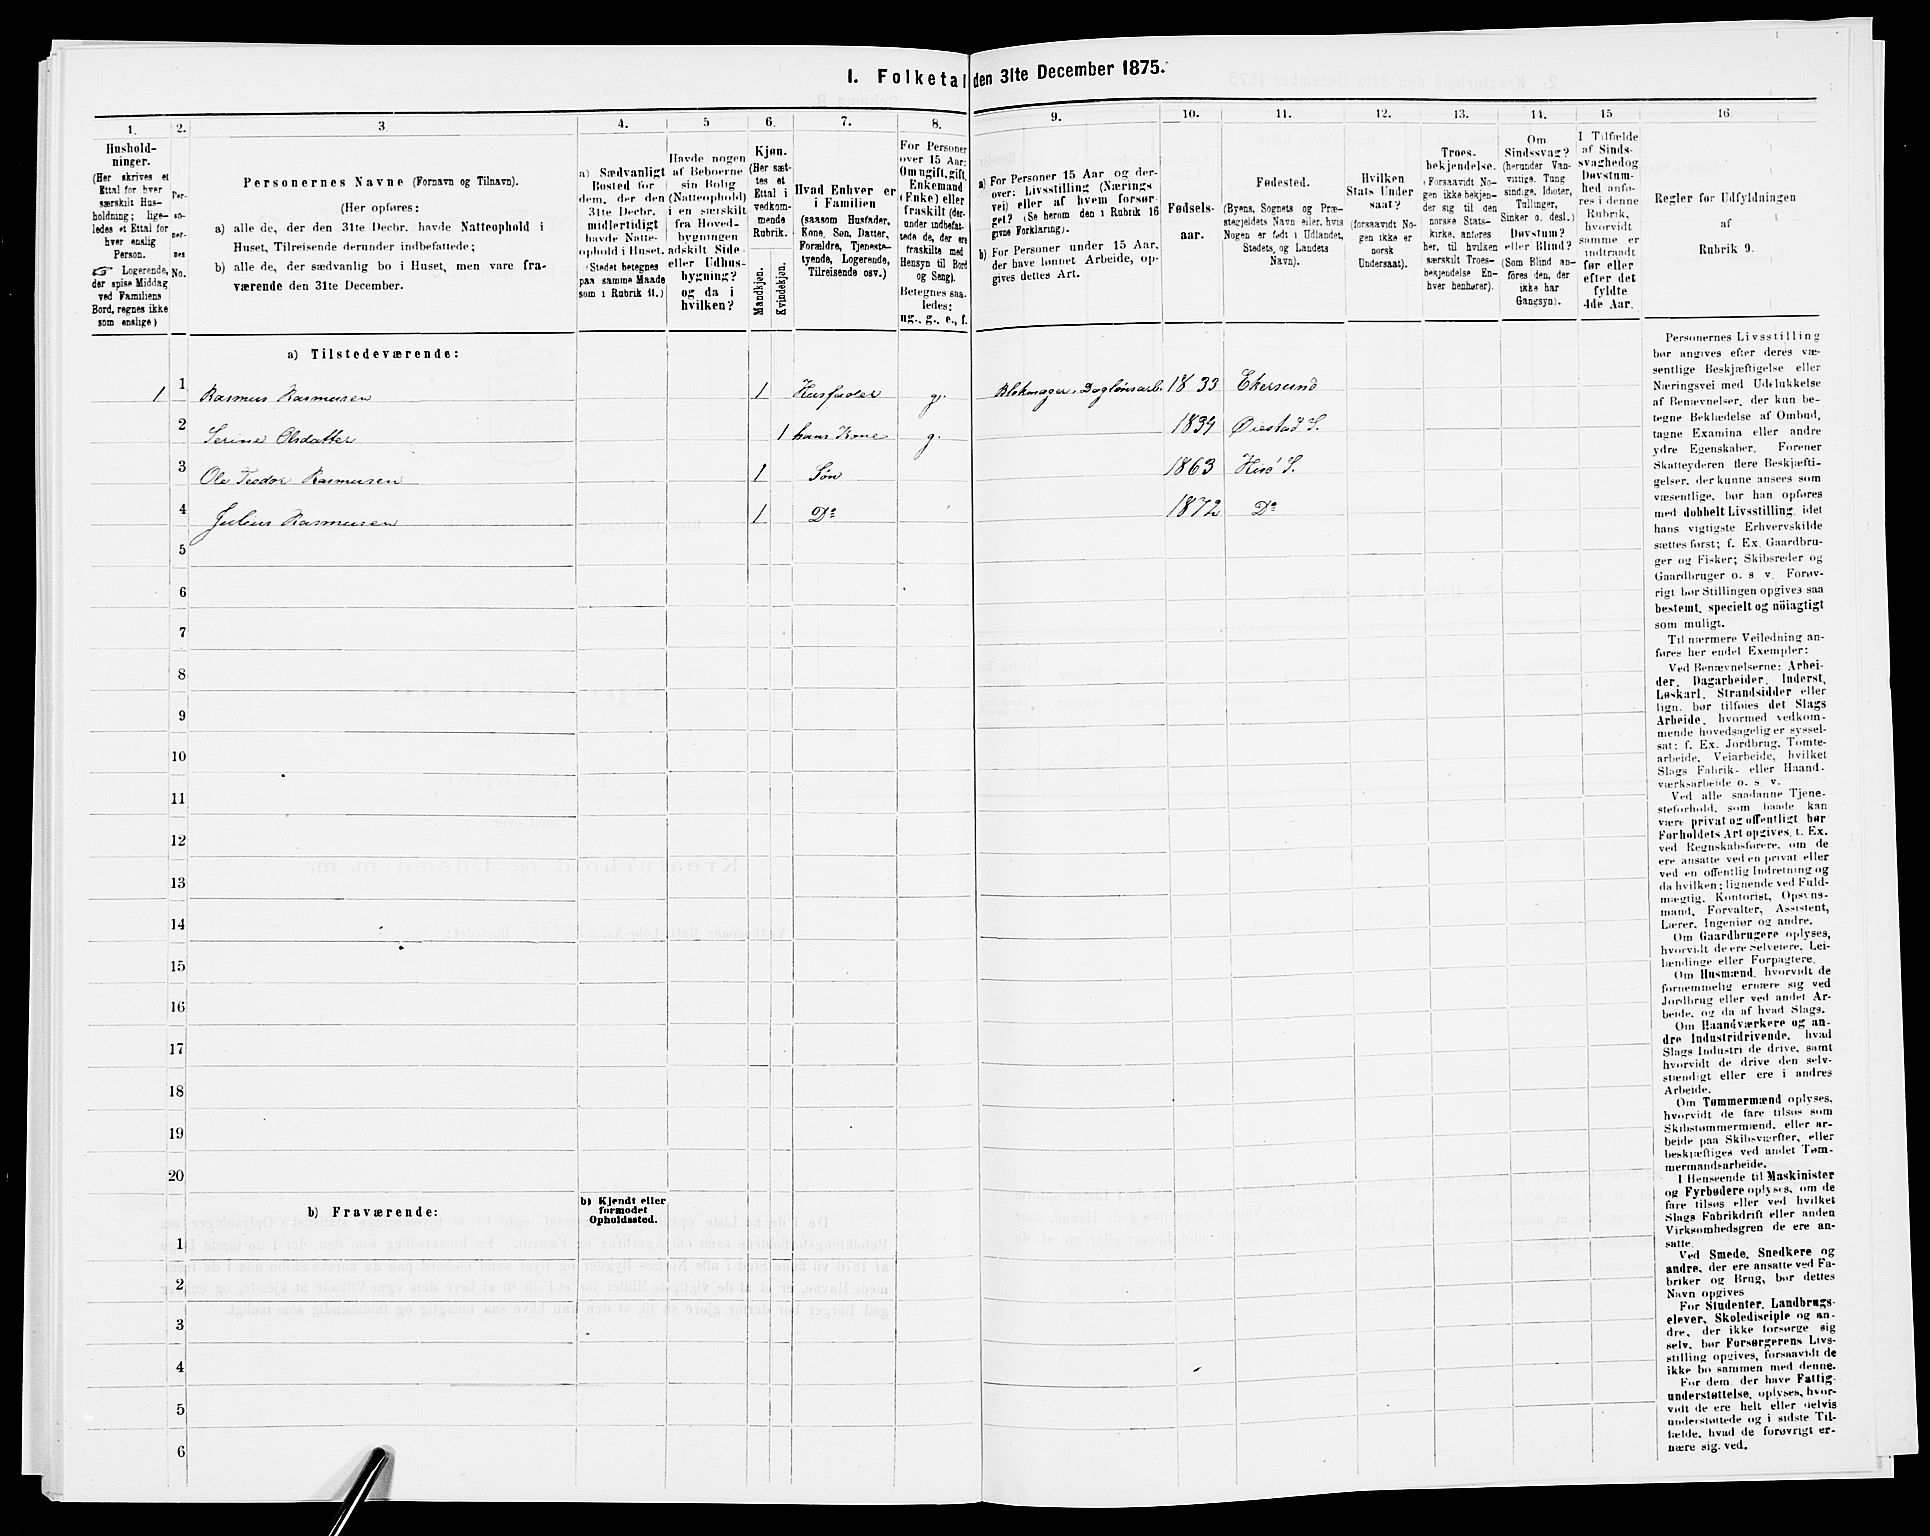 I. Folketal den 31te December 1875.
1.
Hushold-
ninger.
(Her skrives et
Ettal for hver
særskilt Hus-
holdning; lige-
ledes et Ettal for
hver enslig
Person.
☞ Logerende,
der spise Middag
ved Familiens
Bord, regnes ikke
som enslige)
2.
Per-
so-
ner-
nes
No.
3
Personernes Navne (Fornavn og Tilnavn).
(Her opføres:
a) alle de, der den 31te Decbr. havde Natteophold i
Huset, Tilreisende derunder indbefattede;
b) alle de, der sædvanlig bo i Huset, men vare fra-
værende den 31te December.
4.
a) Sædvanligt
Bosted for
dem, der den
31te Decbr.
midlertidigt
havde Natte-
ophold i Huset.
(Stedet betegnes
paa samme Maade
som i Rubrik 11.)
5
Havde nogen
af Beboerne
sin Bolig
(Natteophold)
i en særskilt
fra Hoved-
bygningen
adskilt Side-
eller Udhus-
bygning?
og da i
hvilken?
6.
Kjøn.
(Her sæt-
tes et
Ettal i
vedkom-
mende
Rubrik.
Mandkjøn.
Kvindekjøn.
7.
Hvad Enhver er
i Familien
(saasom Husfader,
Kone, Søn, Datter,
Forældre, Tjeneste-
tyende, Logerende,
Tilreisende osv.)
8.
For Personer
over 15 Aar:
Om ugift, gift,
Enkemand
(Enke) eller
fraskilt (der-
under indbefat-
tede de, der ere
fraskilte med
Hensyn til Bord
og Seng).
Betegnes saa-
ledes:
ug., g., e., f.
9.
a) For Personer 15 Aar og der-
over: Livsstilling (Nærings
vei) eller af hvem forsør-
get? (Se herom den i Rubrik 16
givne Forklaring).
b) For Personer under 15 Aar,
der have lønnet Arbeide, op-
gives dettes Art.
10.
Fødsels-
aar.
11.
Fødested.
(Byens, Sognets og Præ-
stegjeldets Navn eller, hvis
Nogen er født i Udlandet,
Stedets og Landets
Navn).
12.
Hvilken
Stats Under
saat?
(forsaavidt No-
gen ikke er
norsk
Undersaat).
13.
Troes-
bekjendelse.
(Forsaavidt No-
gen ikke bekjen-
der sig til den
norske Stats-
kirke, anføres
her, til hvilken
særskilt Troes-
bekjendelse En-
hver henhører).
14.
Om
Sindssvag?
(herunder Van-
vittige, Tung
sindige, Idioter,
Tullinger,
Sinker o. desl.)
Døvstum?
eller Blind?
(Som Blind an-
føres den, der
ikke har
Gangsyn).
15.
I Tilfælde
af Sinds-
svaghed og
Døvstum-
hed anfø-
res i denne
Rubrik,
hvorvidt
samme er
indtraadt
før eller
efter det
fyldte
4de Aar.
16.
Regler for Udfyldningen
af
Rubrik 9.
a) Tilstedeværende:
1 1 Rasmus Rasmusen 1 Husfader g. Blokmager, Daglønsarb. 1833 Ekersund
2 Serine Olsdatter 1 hans Kone g. 1834 Øiestad S.
3 Ole Teodor Rasmusen 1 Søn 1863 Hisø S.
4 Julius Rasmusen 1 Do 1872 Do
5
6
7
8
9
10
11
12
13
14
15
16
17
18
19
20
b) Fraværende:
b) Kjendt eller
formodet
Opholdssted.
1
2
3
4
5
6
Personernes Livsstilling
bør angives efter deres væ-
sentlige Beskjæftigelse eller
Næringsvei med Udelukkelse
af Benævnelser, der kun be-
tegne Beklædelse af Ombud,
tagne Examina eller andre
ydre Egenskaber. Forener
Skatteyderen flere Beskjæfti-
gelser, der kunne ansees som
væsentlige, bør han opføres
med dobbelt Livsstilling, idet
hans vigtigste Erhvervskilde
sættes først; f. Ex. Gaardbru-
ger og Fisker; Skibsreder og
Gaardbruger o. s v. Forøv-
rigt bør Stillingen opgives saa
bestemt, specielt og nöiagtigt
som muligt.
Til nærmere Veiledning an-
føres her endel Exempler:
Ved Benævnelserne: Arbei-
der, Dagarbeider, Inderst,
Løskarl, Strandsidder eller
lign. bør tilføies det Slags
Arbeide, hvormed vedkom-
mende hovedsagelig er syssel-
sat; f. Ex. Jordbrug, Tomte-
arbeide, Veiarbeide, hvilket
Slags Fabrik- eller Haand-
værksarbeide o. s. v.
Ved alle saadanne Tjene-
steforhold, som baade kan
være privat og offentligt bør
Forholdets Art opgives, t. Ex.
ved Regnskabsførere, om de
ere ansatte ved en privat eller
ved en offentlig Indretning og
da hvilken; lignende ved Fuld-
mægtig, Kontorist, Opsyns-
mand, Forvalter, Assistent,
Lærer, Ingeniør og andre.
Om Gaardbrugere oplyses,
hvorvidt de ere Selveiere, Lei-
lændinge eller Forpagtere.
Om Husmænd, hvorvidt de
fornemmelig ernære sig ved
Jordbrug eller ved andet Ar-
beide, og da af hvad Slags.
Om Haandværkere og an-
dre Industridrivende, hvad
Slags Industri de drive, samt
hvorvidt de drive den selv-
stændigt eller ere i andres
Arbeide.
Om Tømmermænd oplyses,
hvorvidt de fare tilsøs som
Skibstømmermænd, eller ar-
beide paa Skibsværfter, eller
beskjæftiges ved andet Tøm-
mermandsarbeide.
I Henseende til Maskinister
og Fyrbødere oplyses, om de
fare tilsøs eller ved hvilket
Slags Fabrikdrift eller anden
Virksomhedsgren de ere an-
satte.
Ved Smede, Snedkere og
andre, der ere ansatte ved Fa-
briker og Brug, bør dettes
Navn opgives
For Studenter, Landbrugs-
elever, Skoledisciple og an-
dre, der ikke forsørge sig
selv, bør Forsørgerens Livs-
stilling opgives, forsaavidt de
ikke bo sammen med denne.
For dem, der have Fattig-
understøttelse, oplyses, hvor-
vidt de ere helt eller delvis
understøttede og i sidste Til-
fælde, hvad de forøvrigt er-
nære sig ved.